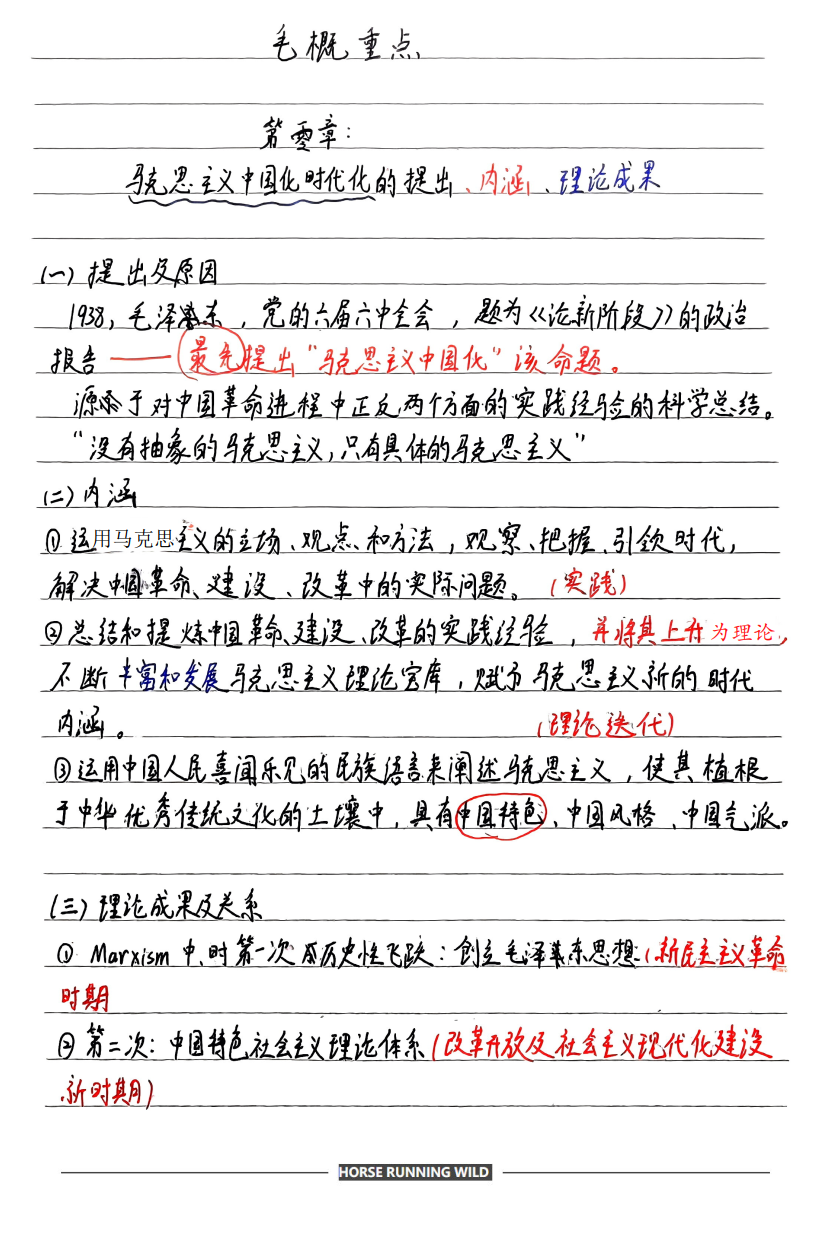 毛概重点
第零章：
马克思主义中国化时代化的提出、内涵、理论成果
（一）提出及原因
1938，毛泽东，党的六届六中全会，题为《论新阶段》的政治
报告——最先提出“马克思主义中国化”该命题。
源于对中国革命进程中正反两个方面的实践经验的科学总结。
“没有抽象的马克思主义，只有具体的马克思主义”
（二）内涵
①运用马克思主义的立场、观点、和方法，观察、把握、引领时代，
解决中国革命、建设、改革中的实际问题。（实践）
②总结和提炼中国革命、建设、改革的实践经验，并将其上升为理论，
不断丰富和发展马克思主义理论宝库，赋予马克思主义新的时代
内涵。（理论迭代）
③运用中国人民喜闻乐见的民族语言来阐述马克思主义，使其植根
于中华优秀传统文化的土壤中，具有中国特色、中国风格、中国气派。
（三）理论成果及关系
① Marxism 中、时第一次历史性飞跃：创立毛泽东思想（新民主主义革命
时期
②第二次：中国特色社会主义理论体系（改革开放及社会主义现代化建设
新时期）
HORSE RUNNING WILD